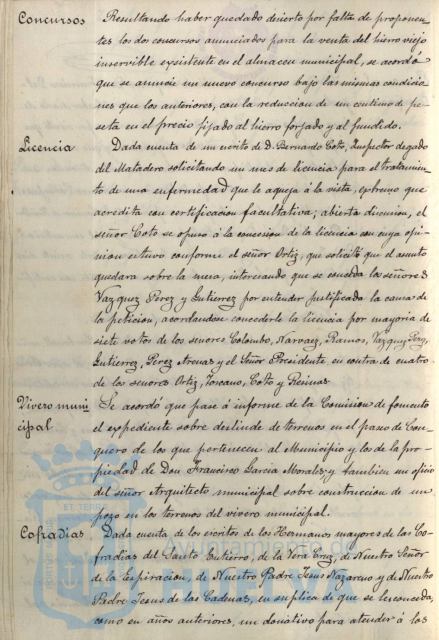 Concursos Resultando haber quedado desierto por falta de proponen-
tes los dos concursos anunciados para la venta del hierro viejo
inservible existente en el almacen municipal, se acordó
que se anuncie un nuevo concurso bajo las mismas condicio-
nes que los anteriores, con la reduccion de un centimo de pe-
seta en el precio fijado al hierro forjado y al fundido.
Licencia Dada cuenta de un escrito de D. Bernardo Coto, Inspector degado
del Matadero solicitando un mes de licencia para el tratamien-
to de una enfermedad que le aqueja á la vista, extremo que
acredita con certificacion facultativa; abierta discusion, el
señor Coto se opuso á la concesion de la licencia con cuya opi-
nion estuvo conforme el señor Ortiz, que solicitó que el asunto
quedara sobre la mesa, interesando que se conceda los señores
Vazquez Perez y Gutierrez por entender justificada la causa de
la peticion, acordandose concederle la licencia por mayoria de
siete votos de los señores Colombo, Narvaez, Ramos, Vazquez Perez,
Gutierrez, Perez Arenas y el Señor Presidente en contra de cuatro
de los señores Ortiz, Toscano, Coto y
Vivero muni
cipal Se acordó que pase á informe de la Comision de fomento
el expediente sobre deslinde de terrenos en el paseo de Con-
quero de los que pertenecen al Municipio y los de la pro-
piedad de Don Francisco Garcia Morales y tambien un oficio
del señor Arquitecto municipal sobre construccion de un
pozo en los terrenos del vivero municipal.
Cofradias Dada cuenta de los escritos de los Hermanos mayores de las Co-
fradias del Santo Entierro, de la Vera Cruz, de Nuestro Señor
de la Espiracion, de Nuestro Padre Jesus Nazareno y de Nuestro
Padre Jesus de las Cadenas, en suplica de que se les conceda,
como en años anteriores, un donativo para atender á los
ET TERR